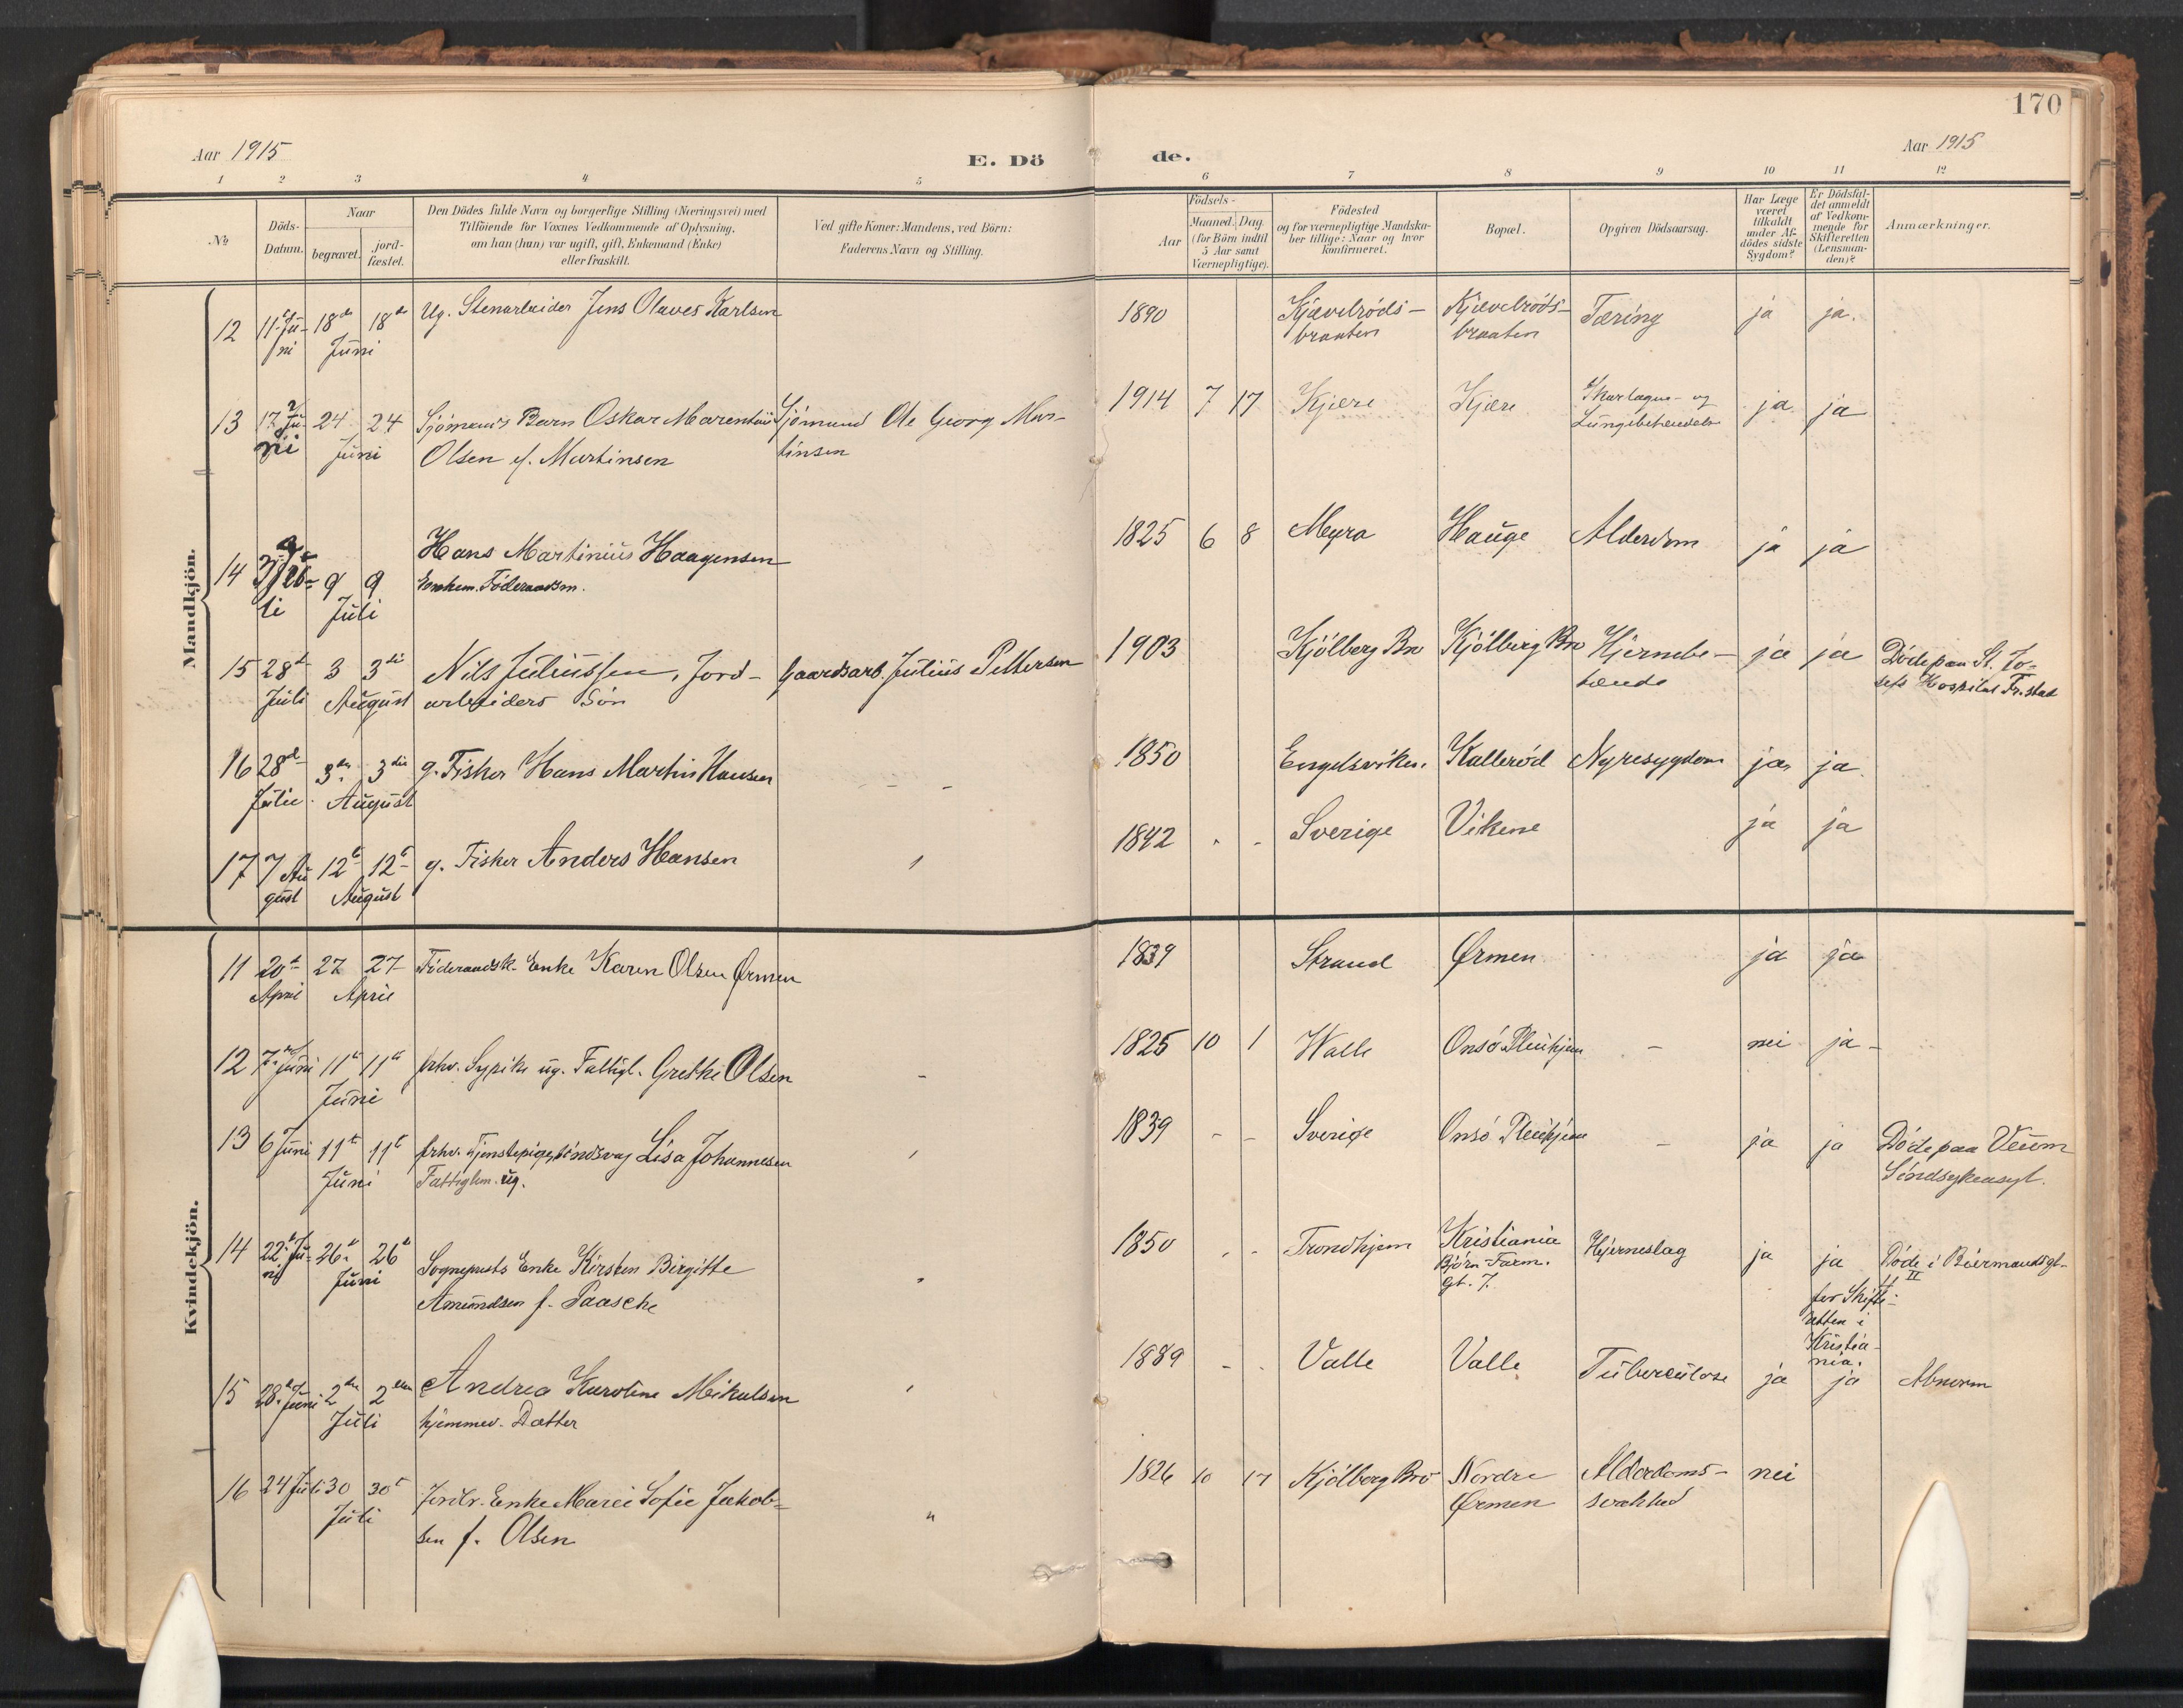 170
Aar 1915
E. Dö
de.
Aar 1915
1 2 3 4 5 6 7 8 9 10 11 12
No
Döds-
Datum.
Naar
begravet.
jord-
fæstet.
Den Dödes fulde Navn og borgerlige Stilling (Næringsvei) med
Tilföiende for Voxnes Vedkommende af Oplysning,
om han (hun) var ugift, gift, Enkemand (Enke)
eller fraskilt.
Ved gifte Koner: Mandens, ved Börn:
Faderens Navn og Stilling.
Födsels-
Aar
Maaned. Dag.
(for Börn indtil
5 Aar samt
Værnepligtige).
Födested
og for værnepligtige Mandska-
ber tillige: Naar og hvor
konfirmeret.
Bopæl.
Opgiven Dödsaarsag.
Har Læge
været
tilkaldt
under Af-
dödes sidste
Sygdom?
Er Dödsfal-
det anmeldt
af Vedkom-
mende for
Skifteretten
(Lensman-
den)?
Anmærkninger.
Mandkjön.
12 11te Ju- 18de 18de Ug. Stenarbeider Jens Olaves Karlsen 1890 Kjævelröds- Kjævelröds- Tæring ja ja.
ni Juni braaten braaten
13 17 Ju- 24 24 Sjömands Barn Oskar Marentius Sjömand Ole Georg Mar- 1914 7 17 Kjære Kjære Skarlagns- og ja ja
ni Juni Olsen el. Martinsen tinsen Lungebetændelse
14 9 9 Hans Martinius Haagensen 1825 6 8 Myra Hauge Alderdom ja ja
li Juli Enkem. Föderaadsm.
15 28de 3 3die Nils Juliussen, Jord- Gaardsarb. Julius Pettersen 1903 Kjölberg Bro Kjölberg Bro Hjernebe- ja ja Döde paa St. Jo-
Juli August arbeiders Sön tænde sefs Hospital Fr.stad
16 28de 3die 3die g. Fisker Hans Martin Hansen - - 1850 Engelsviken. Kallerød Nyresygdom ja ja
Juli. August
17 7 Au 12te 12te g. Fisker Anders Hansen 1842 Sverige Vikene ja ja
gust August
Kvindekjön.
11 20de 27 27 Föderaadsk. Enke Karen Olsen Ørmen 1839 Strand Ørmen ja ja
April April
12 7de Juni 11te 11te fhv. Sypike ug. Fattigl. Grethe Olsen - 1825 10 1 Walle Onsö Pleiehjem - nei ja -
Juni
13 6 Juni 11te 11te fhv. Tjenstepige, sindsvag Lisa Johannesen 1839 - - Sverige Onsö Pleiehjem - ja ja Döde paa Veum
Juni Fattiglem. ug. Sindsykeasyl.
14 22de Ju- 26de 26de Sogneprests Enke Kirsten Birgitte 1850 Trondhjem Kristiania Hjerneslag ja ja Döde i Biermandsgt.
ni Juni Amundsen f. Paasche Björn Farm. II
Gt. 7.
for Skifte-
retten i
Kristia-
nia.
15 28de Juni 2den 2den Andrea Karoline Mikalsen 1889 - - Valle Valle Tuberculose ja ja Abnorm
Juli hjemmev. Datter
16 24 Juli 30 30te Jordbr. Enke Maren Sofie Jakob- " 1826 10 17 Kjölberg Bro Nordre Alderdoms- nei
Juli sen f. Olsen Ørmen svakhed